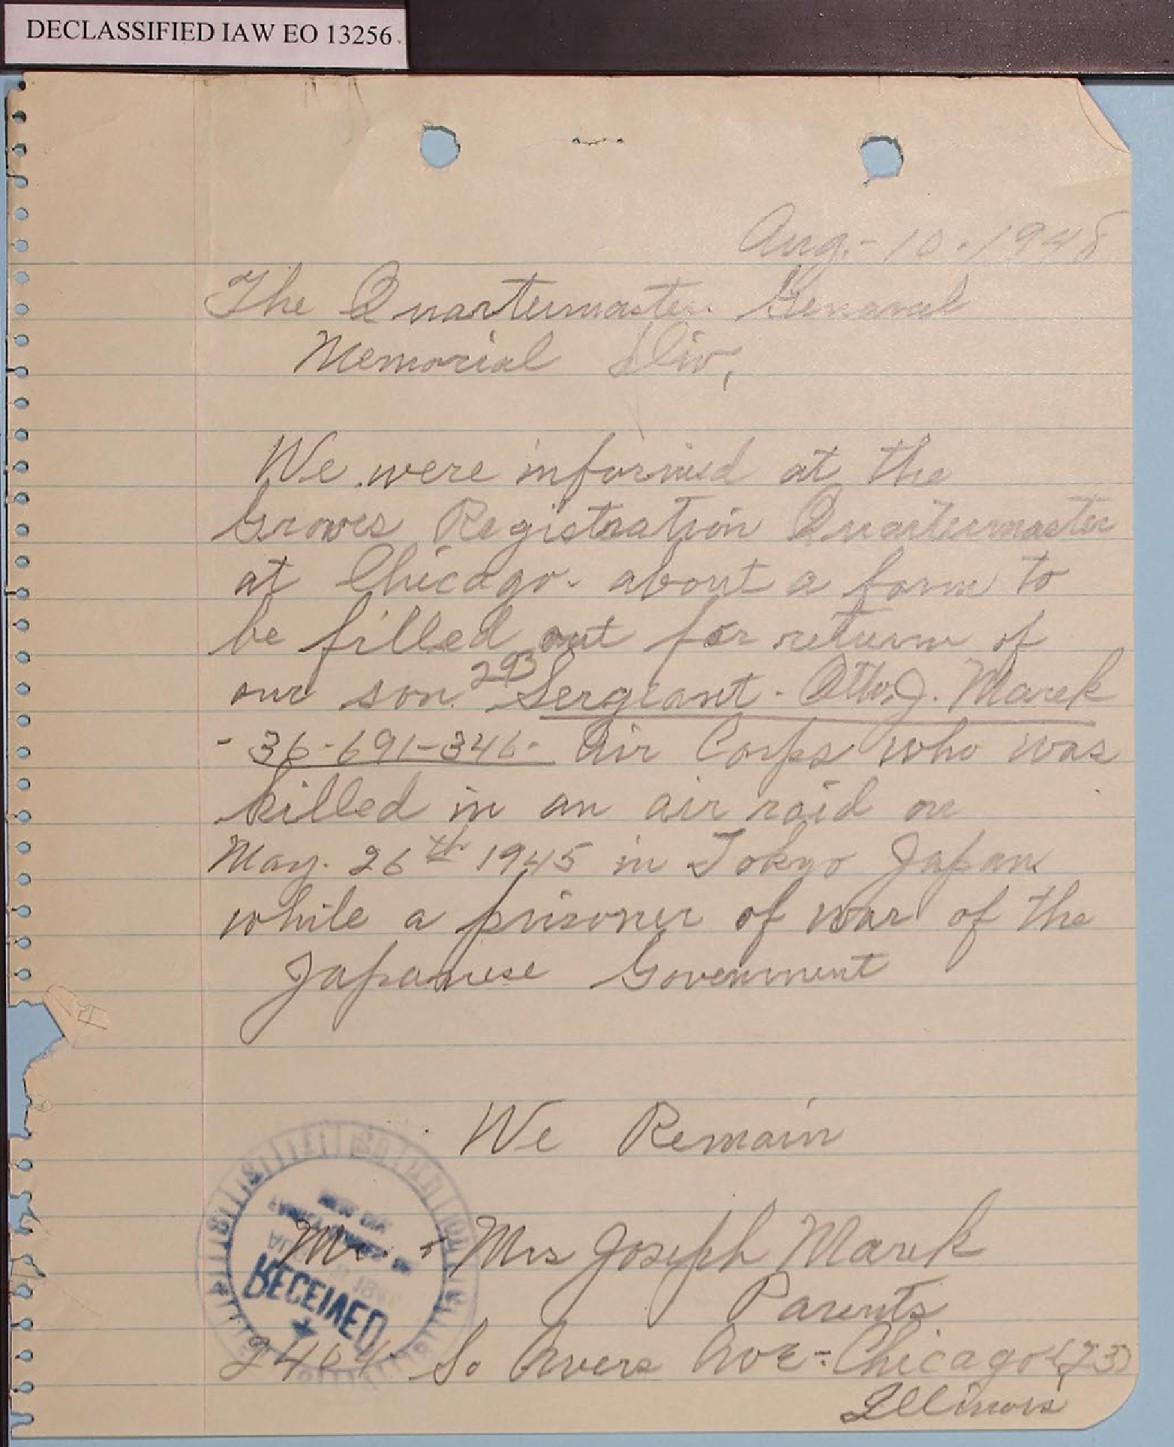 DECLASSIFIED IAW EO 13256
Aug.- 10. 1948
The Quartermaster General
Memorial Div,
We were informed at the
Graves Registration Quartermaster
at Chicago. about a form to
be filled out for return of
our son. Sergeant. Otto. J. Marek
- 36-691-346- Air Corps who was
killed in an air raid on
May. 26th 1945 in Tokyo Japan
while a prisoner of war of the
Japanese Government
We Remain
Mr. + Mrs Joseph Marek
Parents
RECEIVED
So Avers Ave - Chicago (23)
Illinois